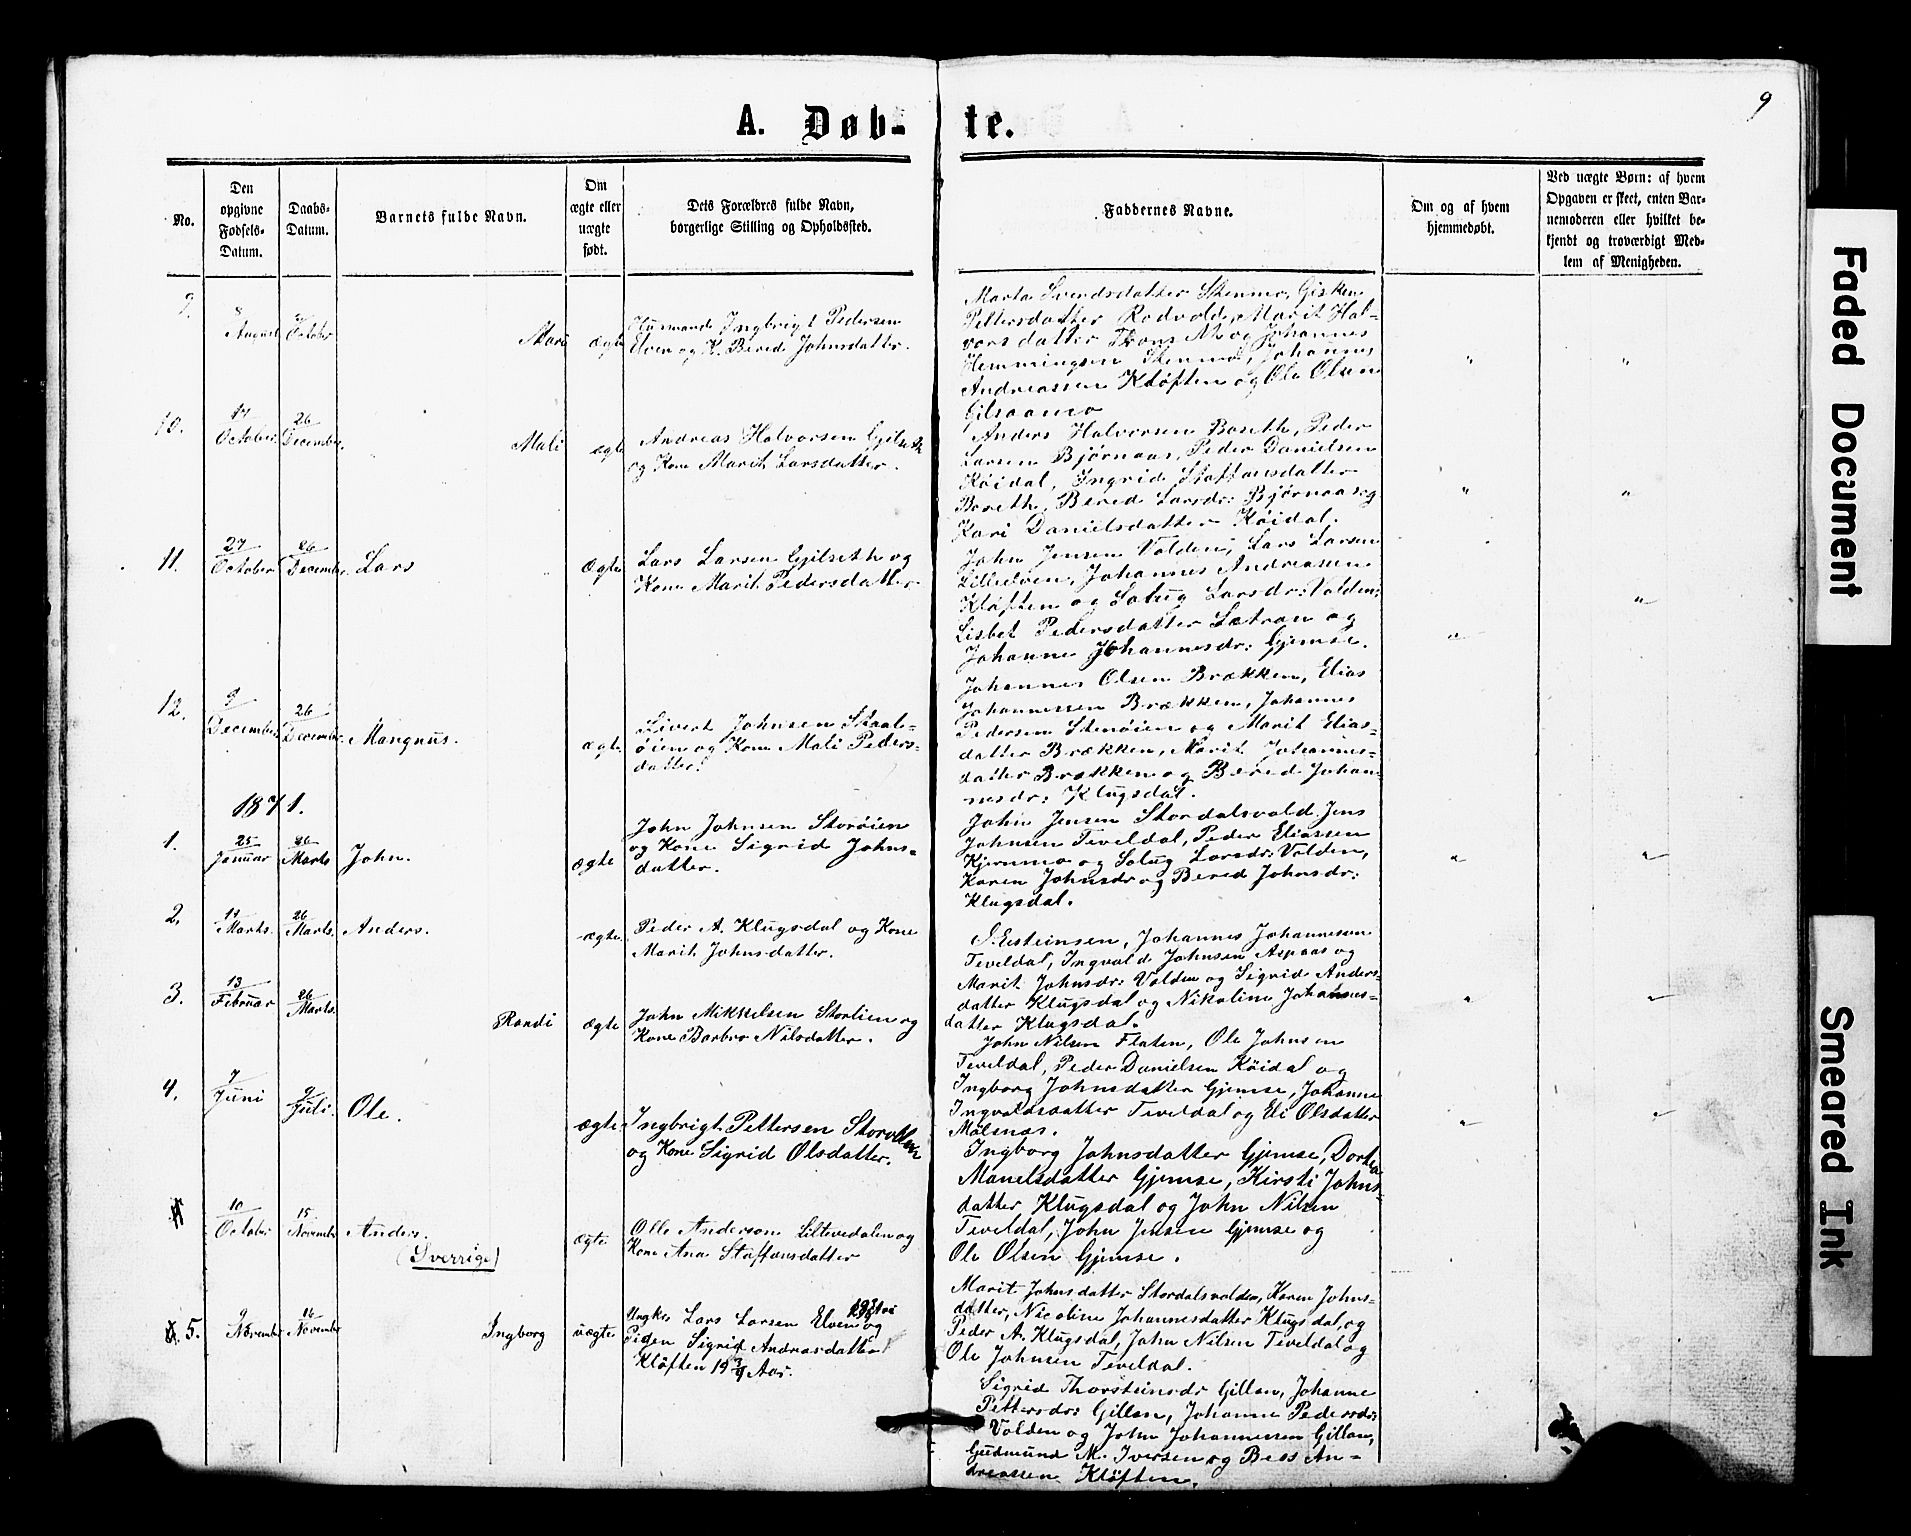 9
A. Døb- te.
No.
Den opgivne Fødsels-Datum.
Daabs-Datum.
Barnets fulde Navn.
Om ægte eller uægte født.
Dets Forældres fulde Navn, borgerlige Stilling og Opholdssted.
Faddernes Navne.
Om og af hvem hjemmedøbt.
Ved uægte Børn: af hvem Opgaven er skeet, enten Barnemoderen eller hvilket bekjendt og troværdigt Medlem af Menigheden.
9.
August
October
Mari
ægte
Husmand Ingbrigt Pedersen
Elven og K. Bered Johnsdatter.
Marta Svendsdatter Stenmo, Gisken
Pettersdatter Rodvold, Marit Hal-
vorsdatter og Johannes
Hemmingsen Stenmo, Johannes
Andreassen Kløften og Ole Olsen
Gilsaamo
10.
17 October
26 December.
Mali
ægte
Andreas Halvorsen Gjilseth
og Kone Marit Larsdatter.
Anders Halvorsen Boseth, Peder
Larsen Bjørnaas, Peder Danielsen
Køidal, Ingrid Staffansdatter
Boseth, Bered Larsdr: Bjørnaas og
Kari Danielsdatter Køidal.
11.
27 October
26 December.
Lars
Ægte
Lars Larsen Gjilseth og
Kone Marit Pedersdatter
John Jensen Volden, Lars Larsen
Lilleelven, Johannes Andreasen
Kløften og Solug Larsdr: Volden,
Lisbet Pedersdatter Sætran og
Johanne Johannesdr: Gjemse.
12.
9 December
26 December.
Mangnus.
ægte
Sivert Johnsen Staale-
øien og Kone Mali Peders-
datter.
Johannes Olsen Brækken, Elias
Johannessen Brækken, Johannes
Pedersen Stenøien og Marit Elias-
datter Brækken, Marit Johannes-
datter Brækken og Bered Johan-
nesdr: Klugsdal.
1871.
1.
25 Januar
26 Marts
John.
ægte
John Johnsen Storøien
og Kone Sigrid Johns-
datter.
John Jensen Stordalsvold, Jens
Johnsen Teveldal, Peder Eliassen
Kjernmo og Solug Larsdr: Volden,
Karen Johnsdr og Bered Johnsdr:
Klugsdal.
2.
Marts.
26 Marts.
Anders.
ægte
Peder A. Klugsdal og Kone
Marit Johnsdatter.
J. Eisteinsen, Johannes Johannesen
Teveldal, Ingvald Johnsen Aspaas og
Marit Johnsdr: Volden og Sigrid Anders-
datter Klugsdal og Nikoline Johannes-
datter Klugsdal.
3.
13 Februar
26 Marts.
Randi
ægte
John Mikkelsen Storlien og
Kone Barbro Nilsdatter.
John Nilsen Flaten, Ole Johnsen
Teveldal, Peder Danielsen Køidal og
Ingborg Johnsdatter Gjemse, Johanne
Ingvaldsdatter Teveldal og Eli Olsdatter
Molmos.
4.
7 Juni
9 Juli.
Ole.
ægte
Ingbrigt Pettersen Storvollen
og Kone Sigrid Olsdatter.
Ingborg Johnsdatter Gjemse, Dortea
Manelsdatter Gjemse, Kirsti Johns-
datter Klugsdal og John Nilsen
Teveldal, John Jensen Gjemse og
Ole Olsen Gjemse.
10 October
15 November
Anders.
(Sverrige)
ægte
Olle Anderson Littevedalen og
Kone Ana Staffansdatter
Marit Johnsdatter Stordalsvolden, Karen Johns-
datter, Nicoline Johannesdatter Klugsdal, og
Peder A. Klugsdal, John Nilsen Teveldal og
Ole Johnsen Teveldal.
5.
9 November
16 November
Ingborg
uægte
Ungk. Lars Larsen Elven og
Pigen Sigrid Andreasdatter
Kløften 19 3/4 Aar.
Sigrid Thorsteinsdr Gillan, Johanne
Pettersdr: Gillan, Johanne Pedersdr:
Volden og John Johannessen Gillan,
Gudmund M. Iversen og Bess An-
dreassen Kløften.
Faded Document
Smeared Ink